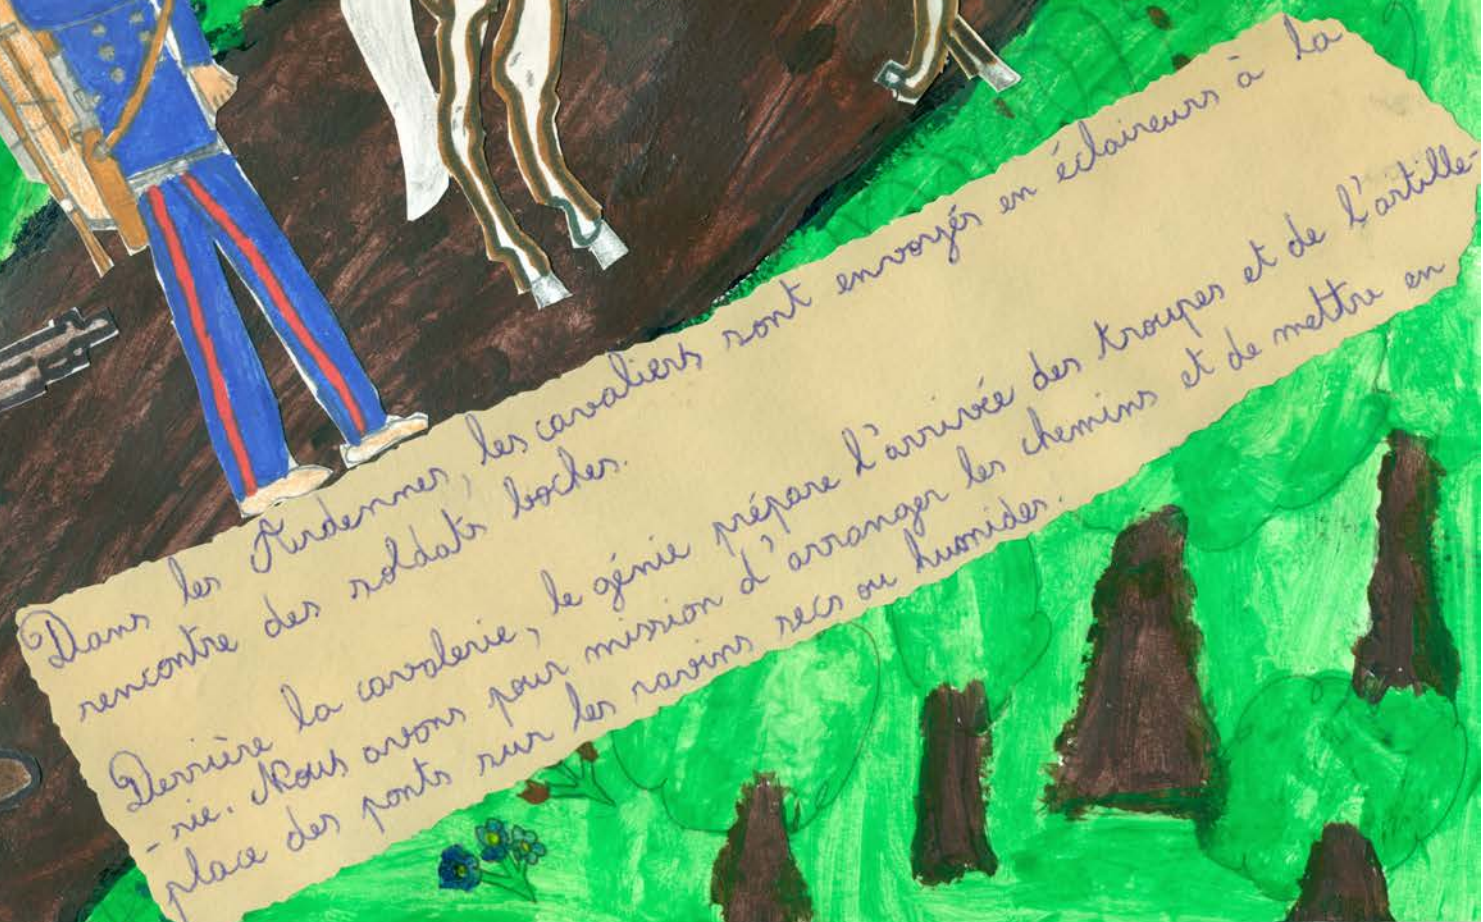 Dans les Ardennes, les cavaliers sont envoyés en éclaireurs à la
rencontre des soldats boches.
Derrière la cavalerie, le génie prépare l'arrivée des troupes et de l'artille-
-rie. Nous avons pour mission d'arranger les chemins et de mettre en
place des ponts sur les ravins secs ou humides.